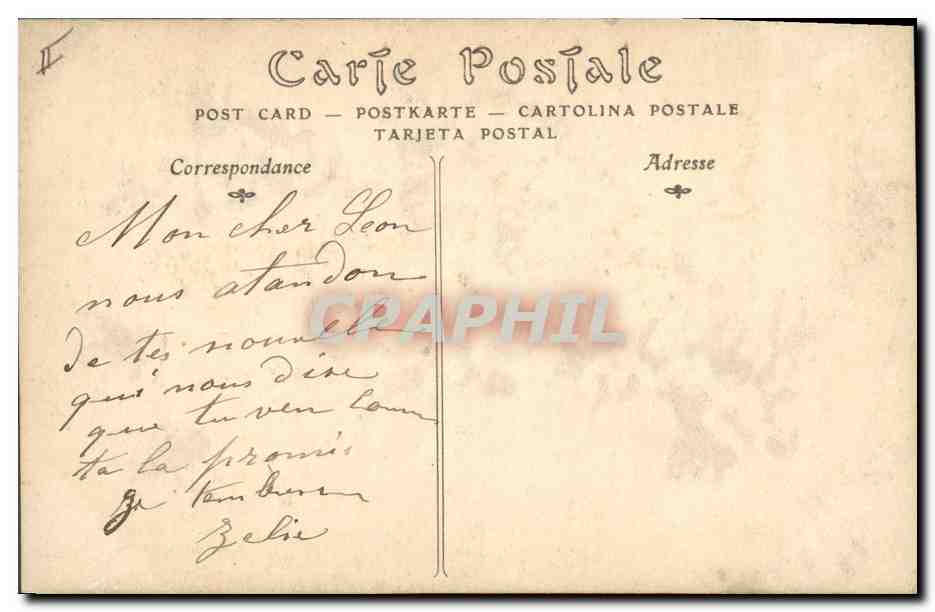 Carte Postale
POST CARD — POSTKARTE — CARTOLINA POSTALE
TARJETA POSTAL
Correspondance
Adresse
Mon cher Leon
nous atandon
de tes nouvele
qui nous dise
que tu ven comm
ta la promis
CPAPHIL
Zelie